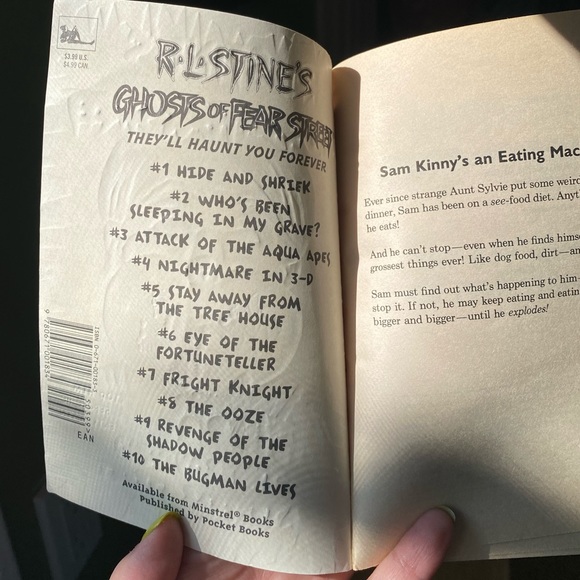 $3.99 U.S.
$4.99 CAN.
R·L·STINE'S
GHOSTS OF FEAR STREET
THEY'LL HAUNT YOU FOREVER
#1 HIDE AND SHRIEK
#2 WHO'S BEEN
SLEEPING IN MY GRAVE?
#3 ATTACK OF THE AQUA APES
#4 NIGHTMARE IN 3-D
#5 STAY AWAY FROM
THE TREE HOUSE
#6 EYE OF THE
FORTUNETELLER
#7 FRIGHT KNIGHT
#8 THE OOZE
#9 REVENGE OF THE
SHADOW PEOPLE
#10 THE BUGMAN LIVES
Available from Minstrel® Books
Published by Pocket Books
EAN
Sam Kinny's an Eating Mac
Ever since strange Aunt Sylvie put some weird
dinner, Sam has been on a see-food diet. Anyt
he eats!
And he can't stop—even when he finds himse
grossest things ever! Like dog food, dirt—an
Sam must find out what's happening to him
stop it. If not, he may keep eating and eatin
bigger and bigger—until he explodes!